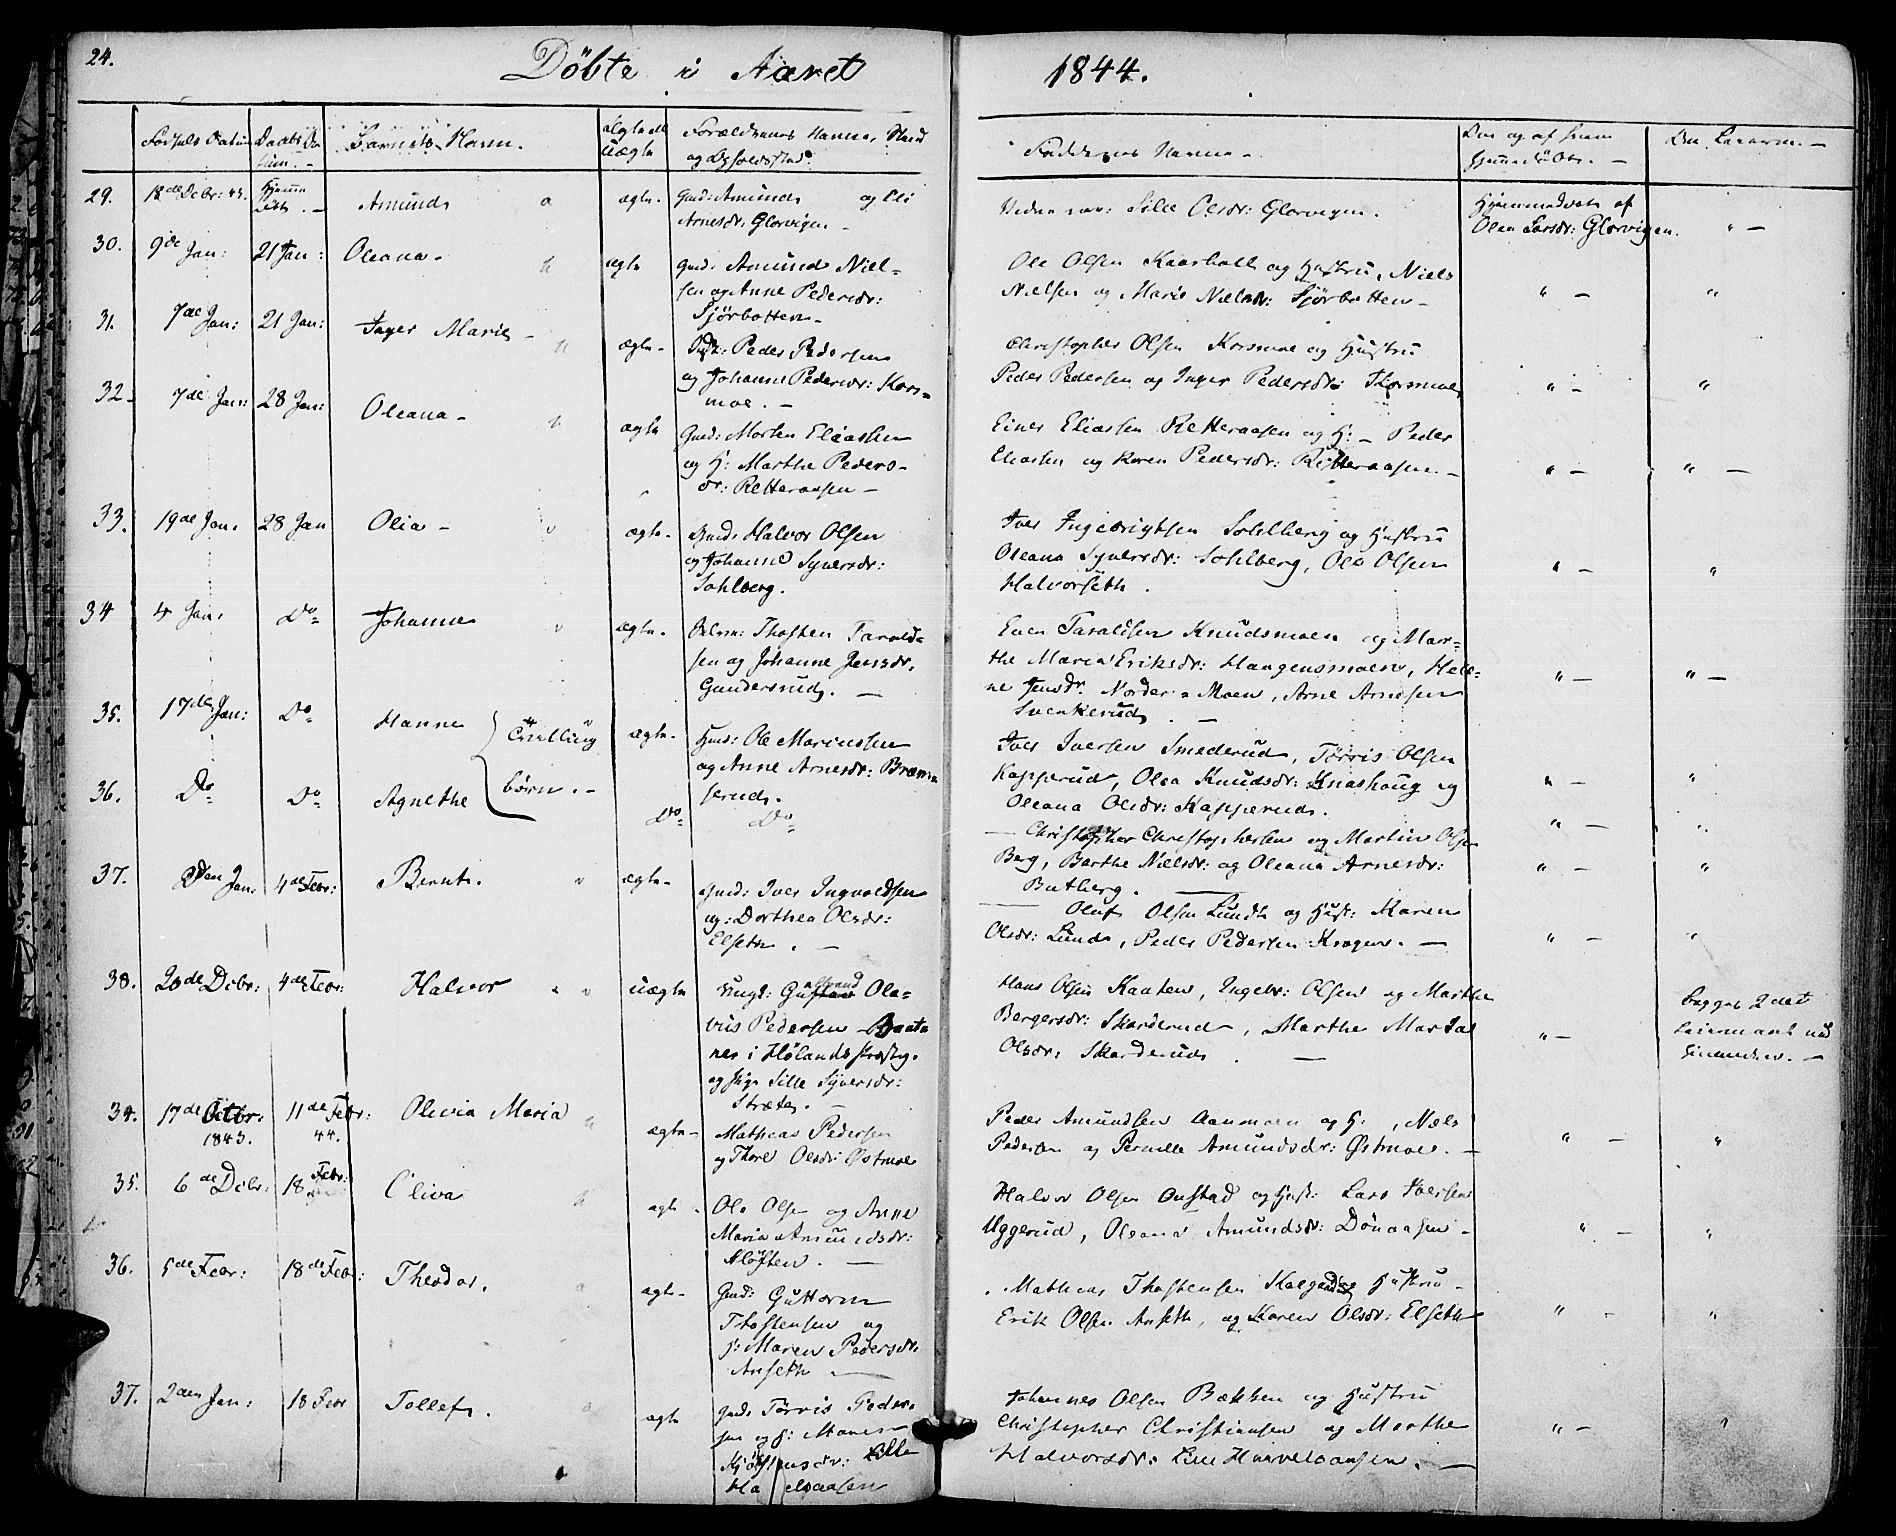 24.
Döbte i Aaret 1844.
Födsels Datum
Daabs Datum.
Barnets Navn.
Ægte ell Uægte
Forældrenes Navne, Stand
og Opholdssted
Faddernes Navne
29. 18de Decbr: 43. Hjemme döbt. Amund ægte. Gmd: Amund og Eli
Arnesdr: Glorvigen
Sille Olsdr: Glorvigen.
Hjemmedöbt af
Olea Larsdr: Glorvigen.
30. 9de Jan: 21 Jan: Oleana ægte Gmd: Amund Niel-
sen og Anne Pedersdr:
Sjörbotten
Ole Olsen Kaarhall og Hustru, Niels
Nielsen og Marie Nielsdr: Sjörbotten
31. 7de Jan: 21 Jan: Inger Marie ægte Peder Pedersen
og Johanne Pedersdr: Kors-
moe.
Christopher Olsen Korsmoe og Hustru
Peder Pedersen og Inger Pedersdr: Korsmoe
32. 7de Jan: 28 Jan: Oleana ægte Gmd: Morten Eliassen
og H: Marthe Peders-
dr: Retteraasen
Einer Eliassen Retteraasen og H: Peder
Eliassen og Karen Pedersdr: Retteraasen.
33. 19de Jan. 28 Jan Olia ægte Gmd: Halvor Olsen
og Johanne Syversdr:
Sohlberg.
Iver Ingebrigtsen Sohlberg og Hustru
Oleana Syversdr: Sohlberg, Ole Olsen
Halvorseth.
34 4 Jan. Do Johanne ægte. Thosten Tarald-
sen og Johanne Jensdr,
Gundersrud.
Even Taraldsen Knudsmoen og Mar-
the Maria Eriksdr: Haagensmoen, Hele-
ne Jensdr. Norder-Moen, Arne Arnesen
Svenkerud.
35. 17de Jan: Do Hanne Tvilling ægte. Gmd: Ole Mariussen
og Anne Arnesdr: Bræn-
serud.
Iver Iversen Smederud, Törris Olsen
Kapperud, Olea Knudsdr: Knashoug og
Oleana Olsdr: Kapperud.
36. Do Do Agnethe börn. Do Do
Christopher Christophersen og Martin Olsen
Berg, Barthe Nielsdr: og Oleana Arnesdr:
Butberg.
37. 2den Jan. 4de Febr: Bernt. ægte Gmd: Iver Ingvoldsen
og: Dorthea Olsdr:
Elseth.
Oluf Olsen Lund og Hust: Karen
Olsdr: Lund, Peder Pedersen Kragen.
38. 26de Dcbr: 4de Febr: Halvor uægte Ungk: Gustav Ola-
vus Pedersen
nes i Hölands Præstg.
og Pige Sille Syversdr:
Stræte.
Hans Olsen Kaaten, Ingebr: Olsen og Marthe
Bergersdr: Skarderud, Marthe Maria
Olsdr: Skarderud.
begges 2det
Leiermaal
34. 17de Octbr: 1843. 11de Febr: 44. Olivia Maria ægte Mathias Pedersen
og Thore Olsdr: Östmoe
Peder Amundsen Aanmoen og H:, Niels
Pedersen og Pernille Amundsdr: Östmoe.
35. 6de Dcbr: 18 Febr: Oliva ægte Ole Olsen og Anne
Maria Amundsdr:
Klöften.
Halvor Olsen Onstad og Hust: Lars Iversen
Uggerud, Oleana Amundsdr: Dönaasen
36. 5de Febr: 18de Febr: Theodor. ægte Gmd: Guttorm
Thostensen og
H: Maren Pedersdr.
Anseth
Mathias Thostensen og Hustru
Erik Olsen Anseth, og Karen Olsdr: Elseth
37. 2den Jan: 18 Febr Tollef. ægte Gmd: Törris Peder-
sen og H: Maren
Kjölstensdr: Lille
Johannes Olsen Bækken og Hustru
Christopher Christiansen og Marthe
Halvorsdr: Lille